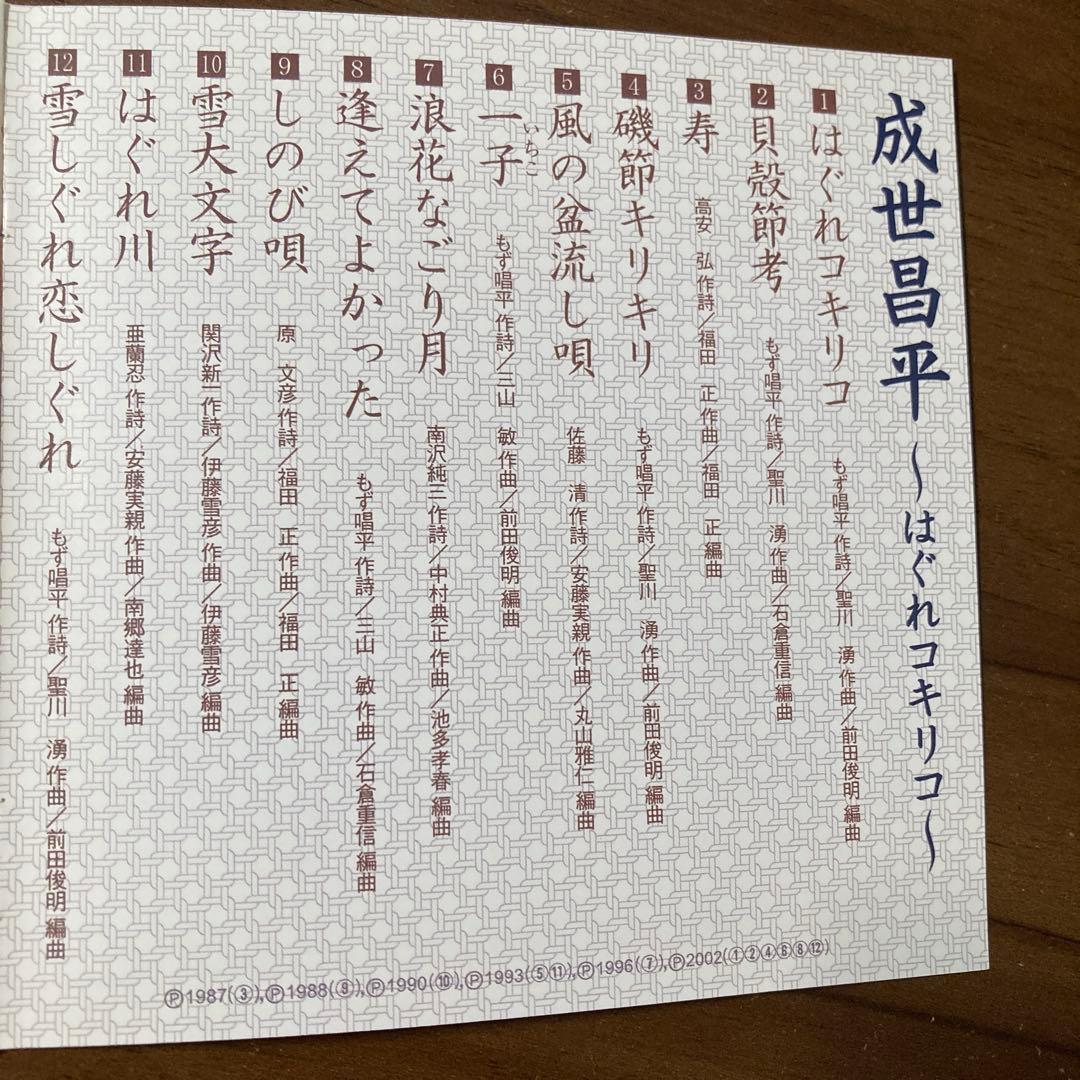 成世昌平 〜はぐれコキリコ〜
1 はぐれコキリコ もず唱平 作詩/聖川 湧 作曲/前田俊明 編曲
2 貝殻節考 もず唱平 作詩/聖川 湧 作曲/石倉重信 編曲
3 寿 高安 弘 作詩/福田 正 作曲/福田 正 編曲
4 磯節キリキリ もず唱平 作詩/聖川 湧 作曲/前田俊明 編曲
5 風の盆流し唄 佐藤 清 作詩/安藤実親 作曲/丸山雅仁 編曲
6 一子 いちこ もず唱平 作詩/三山 敏 作曲/前田俊明 編曲
7 浪花なごり月 南沢純三 作詩/中村典正 作曲/池多孝春 編曲
8 逢えてよかった もず唱平 作詩/三山 敏 作曲/石倉重信 編曲
9 しのび唄 原 文彦 作詩/福田 正 作曲/福田 正 編曲
10 雪大文字 関沢新一 作詩/伊藤雪彦 作曲/伊藤雪彦 編曲
11 はぐれ川 亜蘭忍 作詩/安藤実親 作曲/南郷達也 編曲
12 雪しぐれ恋しぐれ もず唱平 作詩/聖川 湧 作曲/前田俊明 編曲
Ⓟ1987(③),Ⓟ1988(⑨),Ⓟ1990(⑩),Ⓟ1993(⑤⑪),Ⓟ1996(⑦),Ⓟ2002(①②④⑥⑧⑫)